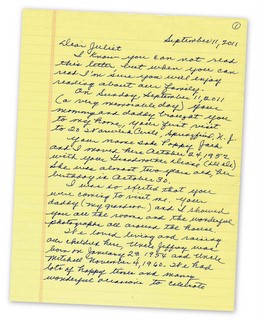 ①
September 11, 2011
Dear Juliet
I know you can not read
this letter but when you can
read I'm sure you will enjoy
reading about our family.
On Sunday September 11, 2011
(a very memorable day) your
mommy and daddy brought you
to my home, your first visit
to 20 Warwick Circle, Springfield, N.J.
Your Poppy Jack
and I moved here October 24, 1957
with your Grandmother
She was almost two years old her
birthday is October 30.
I was so excited that you
were coming to visit me, your
daddy (my grandson) and I showed
you all the rooms and the wonderful
photographs all around the house
We loved living and raising
our children here, Uncle Jeffrey was
born on January 29, 1959 and Uncle
Mitchell November 9, 1960. We had
lots of happy times and many
wonderful occasions to celebrate